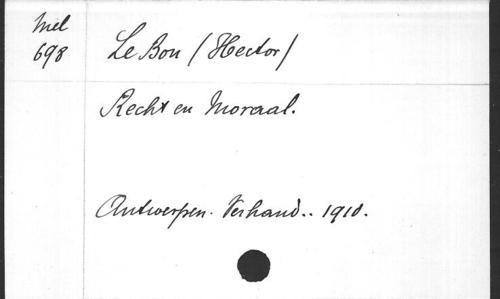 Mél
698
Le Bon (Hector)
Recht en Moraal.
Antwerpen. Verhand.. 1910.